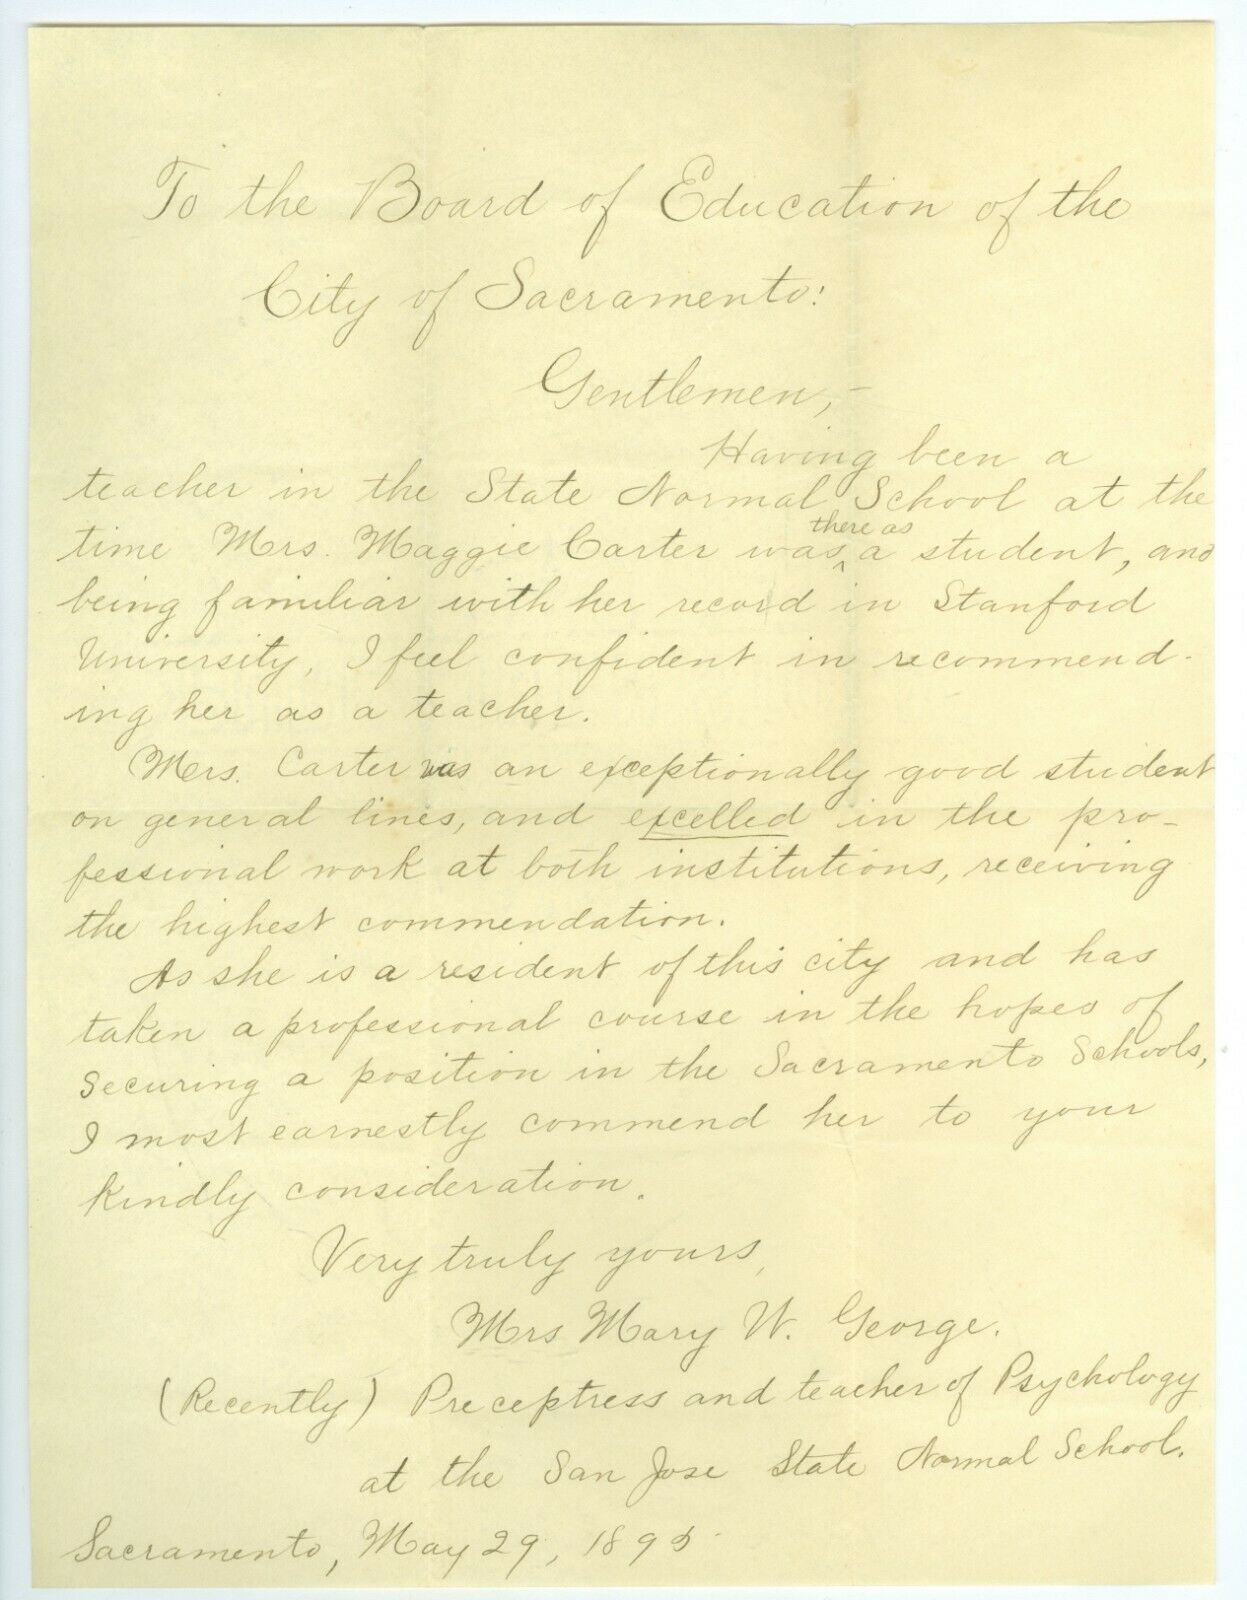 To the Board of Education of the
City of Sacramento:
Gentlemen,-
Having been a
teacher in the State Normal School at the
there as
time Mrs. Maggie Carter was ^ a student, and
being familiar with her record in Stanford
University, I feel confident in recommend-
ing her as a teacher.
Mrs. Carter was an exceptionally good student
on general lines, and excelled in the pro-
fessional work at both institutions, receiving
the highest commendation.
As she is a resident of this city and has
taken a professional course in the hopes of
securing a position in the Sacramento Schools,
I most earnestly commend her to your
kindly consideration.
Very truly yours,
Mrs Mary W. George.
(Recently) Preceptress and teacher of Psychology
at the San Jose State Normal School.
Sacramento, May 29, 1895